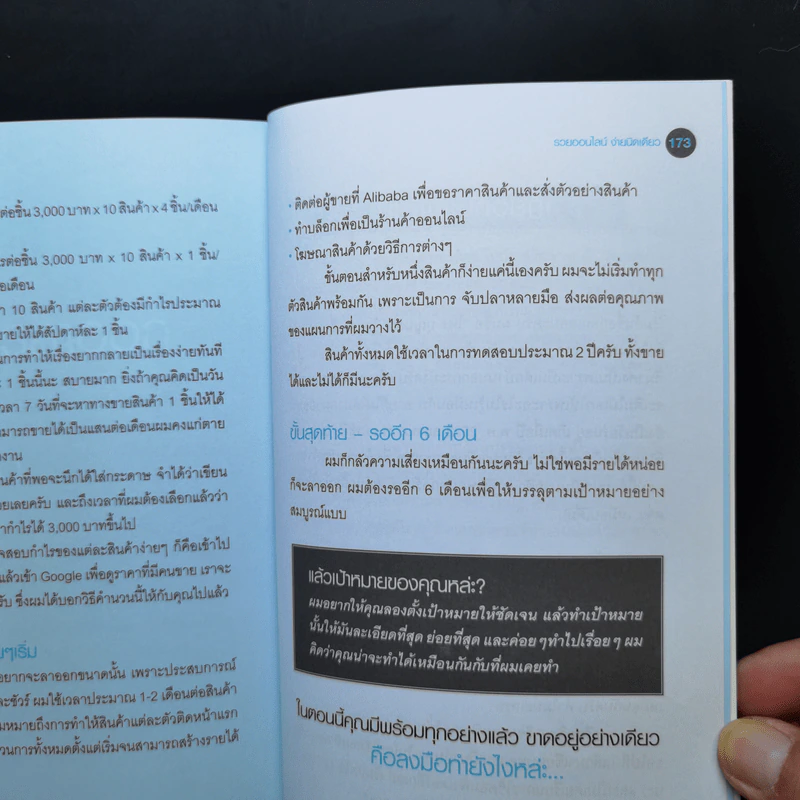 ต่อชิ้น 3,000 บาท x 10 สินค้า x 4 ชิ้น/เดือน
รต่อชิ้น 3,000 บาท x 10 สินค้า x 1 ชิ้น/
อเดือน
า 10 สินค้า แต่ละตัวต้องมีกำไรประมาณ
ขายให้ได้สัปดาห์ละ 1 ชิ้น
นการทำให้เรื่องยากกลายเป็นเรื่องง่ายทันที
x 1 ชิ้นนี้นะ สบายมาก ยิ่งถ้าคุณคิดเป็นวัน
เวลา 7 วันที่จะหาทางขายสินค้า 1 ชิ้นให้ได้
ามารถขายได้เป็นแสนต่อเดือนผมคงแก่ตาย
งงาน
นค้าที่พอจะนึกได้ใส่กระดาษ จำได้ว่าเขียน
ายเลยครับ และถึงเวลาที่ผมต้องเลือกแล้วว่า
ากำไรได้ 3,000 บาทขึ้นไป
จสอบกำไรของแต่ละสินค้าง่ายๆ ก็คือเข้าไป
แล้วเข้า Google เพื่อดูราคาที่มีคนขาย เราจะ
รับ ซึ่งผมได้บอกวิธีคำนวนนี้ให้กับคุณไปแล้ว
ยๆเริ่ม
อยากจะลาออกขนาดนั้น เพราะประสบการณ์
ละชัวร์ ผมใช้เวลาประมาณ 1-2 เดือนต่อสินค้า
มหมายถึงการทำให้สินค้าแต่ละตัวติดหน้าแรก
วนการทั้งหมดตั้งแต่เริ่มจนสามารถสร้างรายได้
รวยออนไลน์ ง่ายนิดเดียว 173
• ติดต่อผู้ขายที่ Alibaba เพื่อขอราคาสินค้าและสั่งตัวอย่างสินค้า
• ทำบล็อกเพื่อเป็นร้านค้าออนไลน์
• โฆษณาสินค้าด้วยวิธีการต่างๆ
ขั้นตอนสำหรับหนึ่งสินค้าก็ง่ายแค่นี้เองครับ ผมจะไม่เริ่มทำทุก
ตัวสินค้าพร้อมกัน เพราะเป็นการ จับปลาหลายมือ ส่งผลต่อคุณภาพ
ของแผนการที่ผมวางไว้
สินค้าทั้งหมดใช้เวลาในการทดสอบประมาณ 2 ปีครับ ทั้งขาย
ได้และไม่ได้ก็มีนะครับ
ขั้นสุดท้าย – รออีก 6 เดือน
ผมก็กลัวความเสี่ยงเหมือนกันนะครับ ไม่ใช่พอมีรายได้หน่อย
ก็จะลาออก ผมต้องรออีก 6 เดือนเพื่อให้บรรลุตามเป้าหมายอย่าง
สมบูรณ์แบบ
แล้วเป้าหมายของคุณหล่ะ?
ผมอยากให้คุณลองตั้งเป้าหมายให้ชัดเจน แล้วทำเป้าหมาย
นั้นให้มันละเอียดที่สุด ย่อยที่สุด และค่อยๆทำไปเรื่อยๆ ผม
คิดว่าคุณน่าจะทำได้เหมือนกันกับที่ผมเคยทำ
ในตอนนี้คุณมีพร้อมทุกอย่างแล้ว ขาดอยู่อย่างเดียว
คือลงมือทำยังไงหล่ะ...